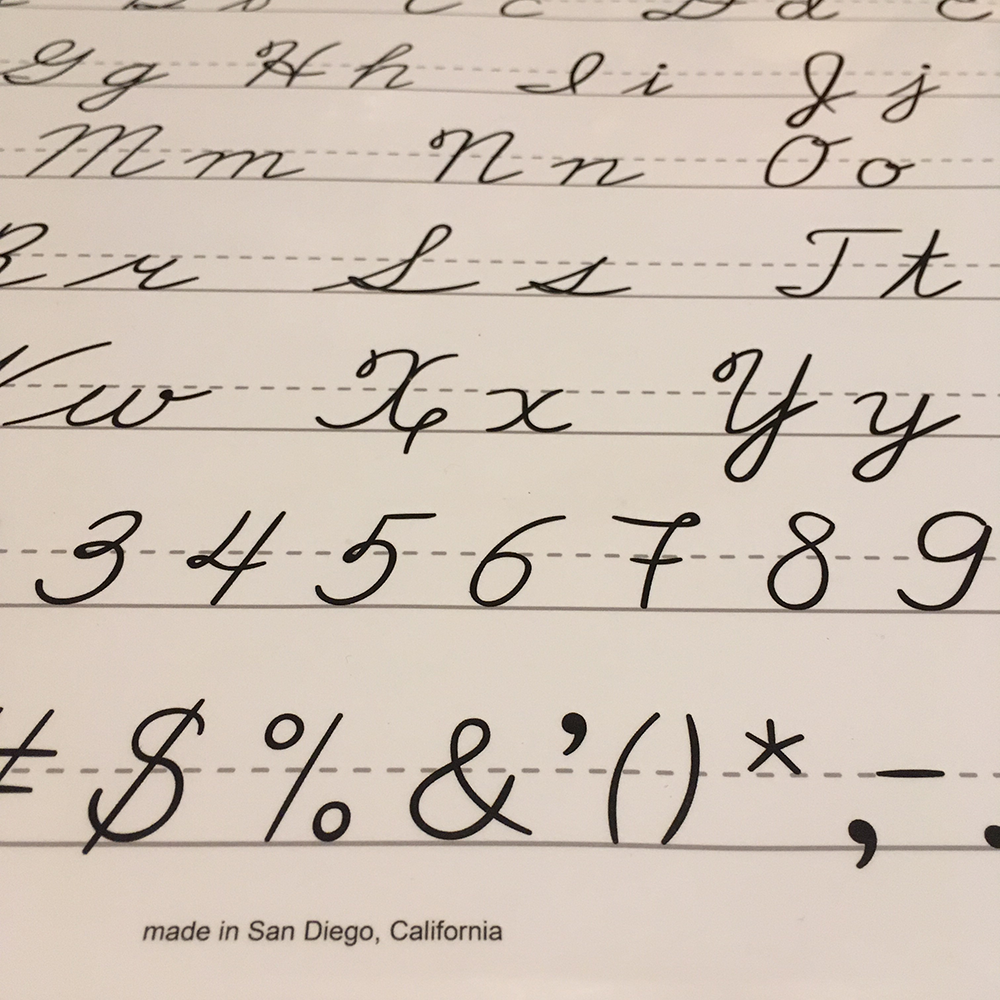 c D d
G g H h I i J j
M m N n O o
R r S s T t
w X x Y y
3 4 5 6 7 8 9
# $ % & ' ( ) * , - .
made in San Diego, California